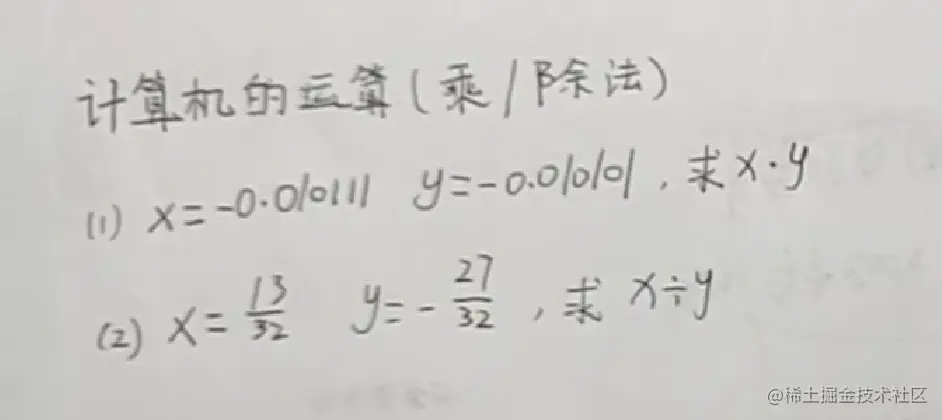 计算机的运算(乘/除法)
(1) x=-0.010111 y=-0.010101,求x·y
(2) x=13/32 y=-27/32,求x÷y
@稀土掘金技术社区